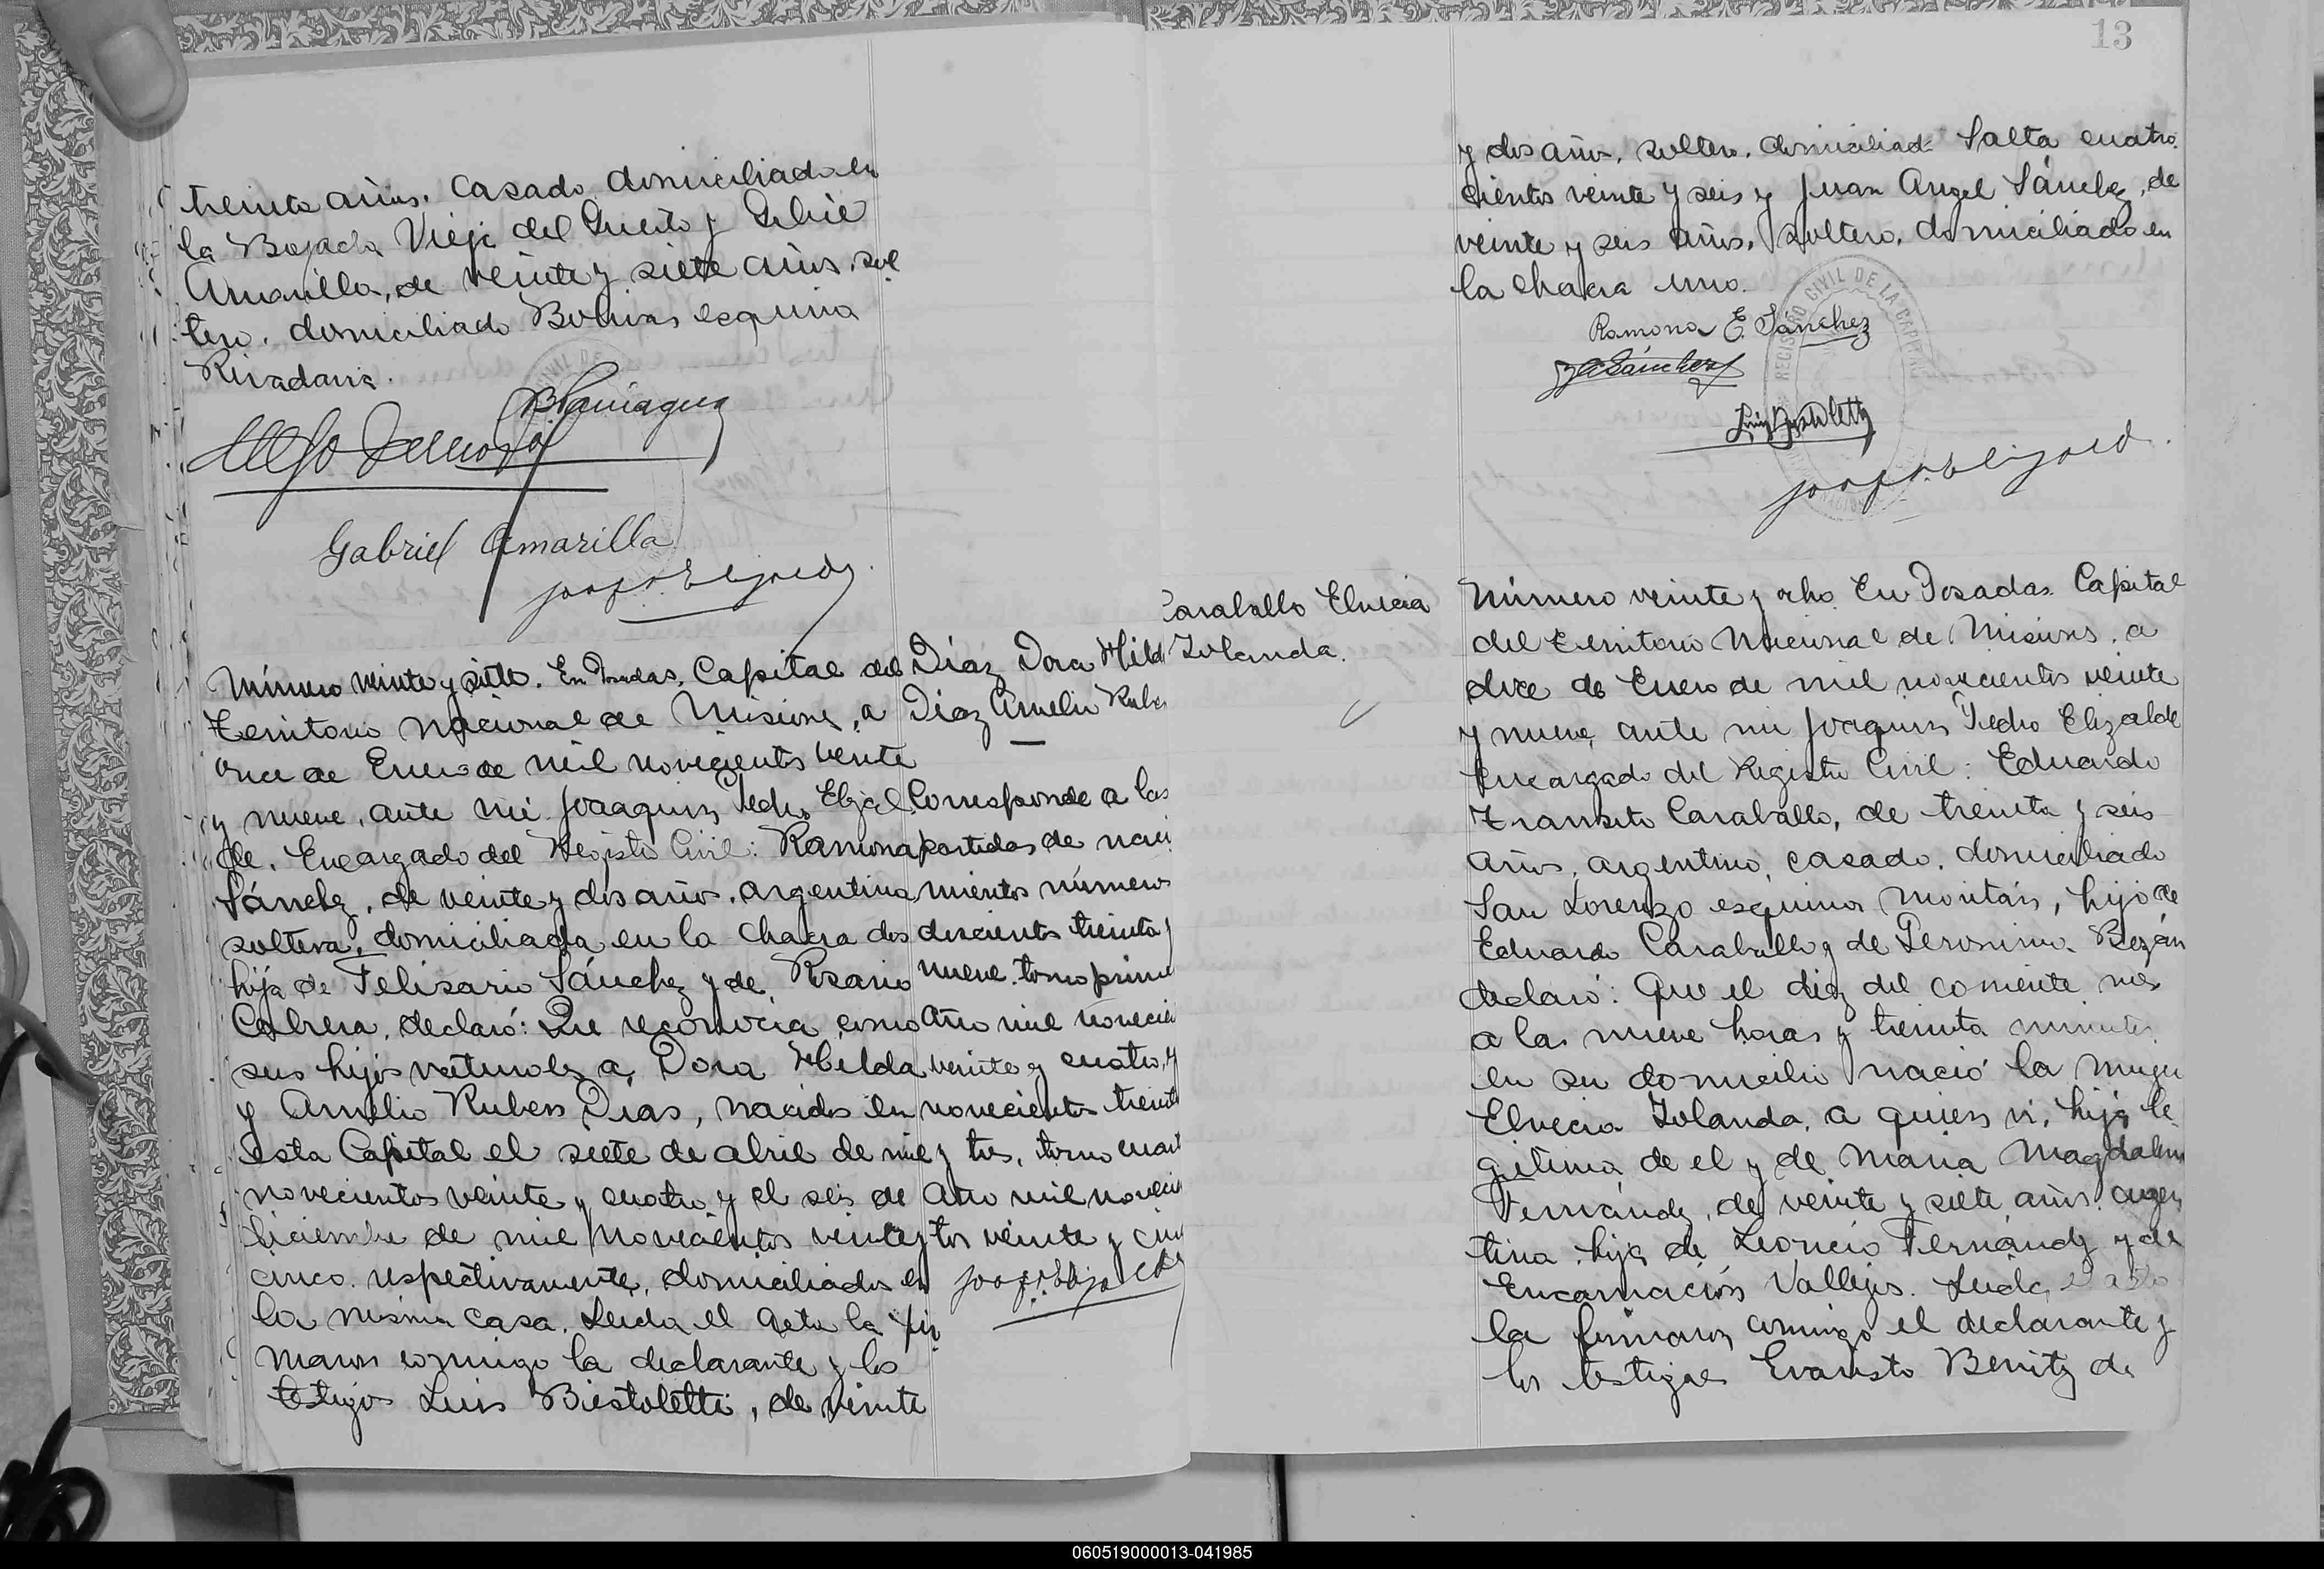 treinta años. Casado domiciliado en
la Bajada Vieja del Puerto y Gabriel
Amarilla, de veinte y siete años, sol
tero. domiciliado Bolivar esquina
Rivadavia.
Gabriel Amarilla
Número veinte y siete. En Posadas, Capital del
Territorio Nacional de Misiones, a
once de Enero de mil novecientos veinte
y nueve, ante mi Joaquin Pedro Elizal
de. Encargado del Registro Civil: Ramona
Sánchez, de veinte y dos años, argentina
soltera, domiciliada en la chacra dos
hija de Felisario Sánchez y de Rosario
Cabrera, declaró: Que reconocia como
sus hijos naturales a Dora Hilda
y Amelio Ruben Dias, nacidos en
esta Capital el siete de abril de mil
novecientos veinte y cuatro y el seis de
Diciembre de mil novecientos veinte y
cinco respectivamente, domiciliados en
la misma casa. Leida el acta la fir
maron conmigo la declarante y los
testigos Luis Bistoletti, de veinte
Diaz Dora Hild
Diaz Amelio Rube
Corresponde a las
partidas de naci
mientos números
doscientos treinta y
nueve tomo prime
Año mil novecien
veinte y cuatro, y
novecientos treinta
y tres, tomo cuart
Año mil novecien
tos veinte y cin
13
y dos años, soltero, domiciliado Salta cuatro
cientos veinte y seis y Juan Angel Sánchez, de
veinte y seis años, soltero, domiciliado en
la chacra uno.
Ramona E. Sánchez
J A Sánchez
REGISTRO CIVIL DE LA CAPITAL
Caraballo Elvecia
Iolanda.
Número veinte y ocho. En Posadas. Capital
del Territorio Nacional de Misiones, a
doce de Enero de mil novecientos veinte
y nueve, ante mi Joaquin Pedro Elizalde
Encargado del Registro Civil: Eduardo
Transito Caraballo, de treinta y seis
años, argentino, casado, domiciliado
San Lorenzo esquina Moritán, hijo de
Eduardo Caraballo y de Geronima
declaró: Que el diez del corriente mes
a las nueve horas y treinta minutos
en su domicilio nació la mujer
Elvecia Iolanda, a quien vi, hija le
gitima de el y de Maria Magdalena
Fernández, de veinte y siete años, argen
tina, hija de Leoncio Fernández y de
Encarnación Vallejos. Leida el acta
la firmaron conmigo el declarante y
los testigos Evaristo Benitez de